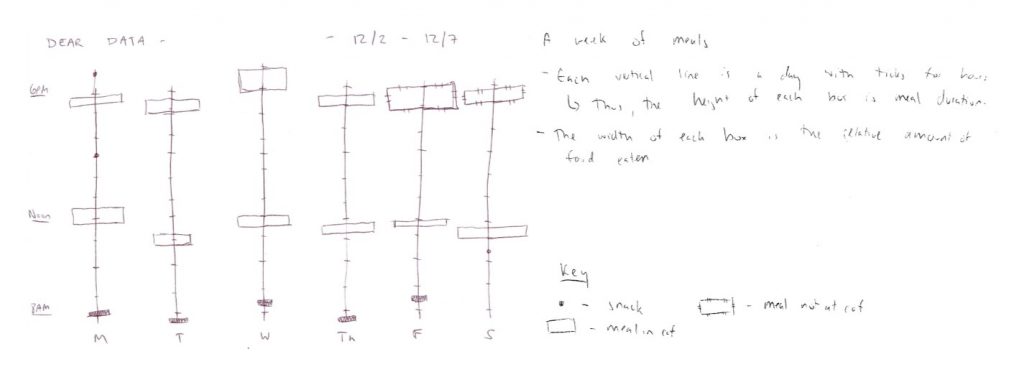 DEAR DATA -
- 12/2 - 12/7
A week of meals
- Each vertical line is a day with ticks for hours
↳ Thus, the height of each box is meal duration.
- The width of each box is the relative amount of
food eaten
6PM
Noon
8AM
M T W Th F S
Key
• - snack
- meal not at caf
- meal in caf